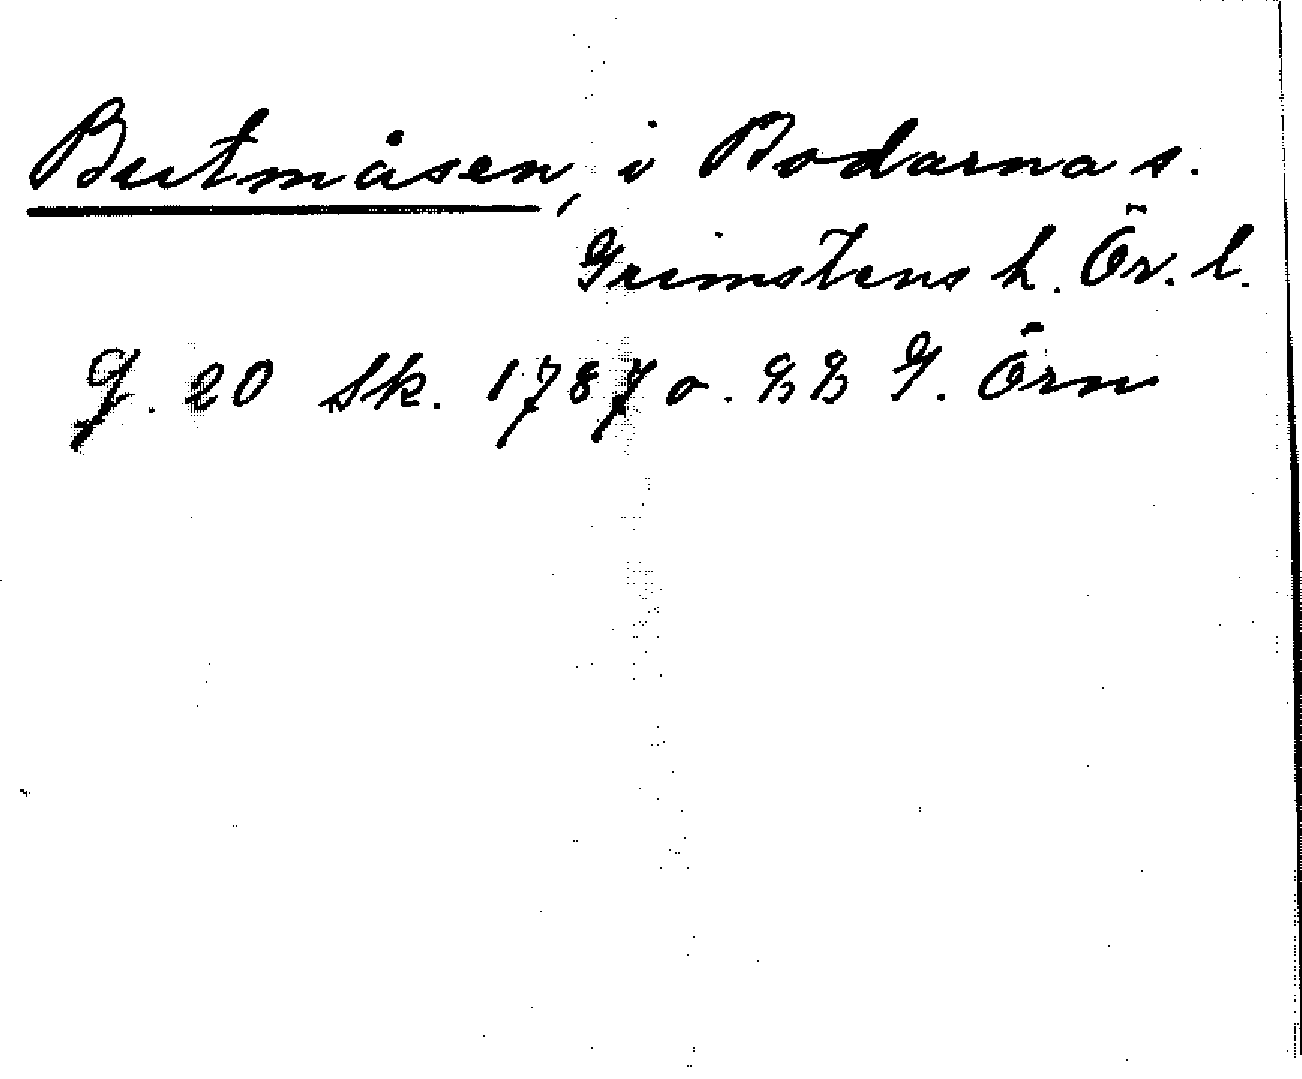 Butmåsen, i Bodarna s.
Grimstens h. Ör. l.
G. 20 Sk. 1787 o. EE G. Örn